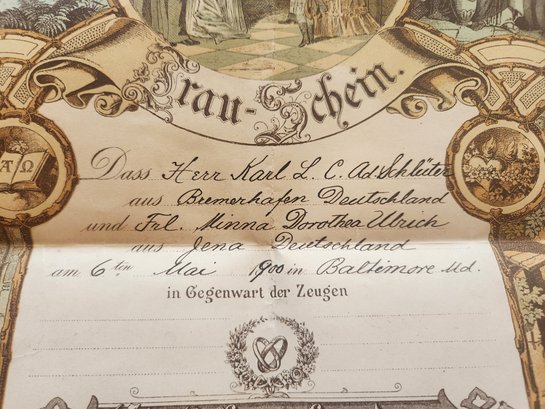 Trau-Schein.
A Ω
Dass Herr Karl L. C. Ad. Schlüter
aus Bremerhafen Deutschland
und Frl. Minna Dorothea Ulrich
aus Jena Deutschland
am 6ten Mai 1900 in Baltimore Md.
in Gegenwart der Zeugen